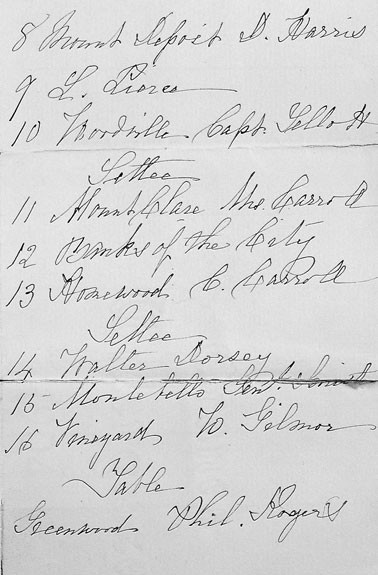 8 Mount Deposit D. Harris
9 L. Pierce
10 Woodville Capt. Jello H
Settee
11 Mount Clare Mrs. Carroll
12 Banks of the City
13 Homewood C. Carroll
Settee
14 Walter Dorsey
15 Montebello Genl. Smith
16 Vineyard W. Gilmor
Table
Greenwood Phil. Rogers